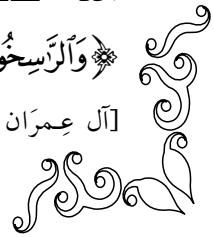 ﴿وَٱلرَّٰسِخُو
[آل عِمرَان